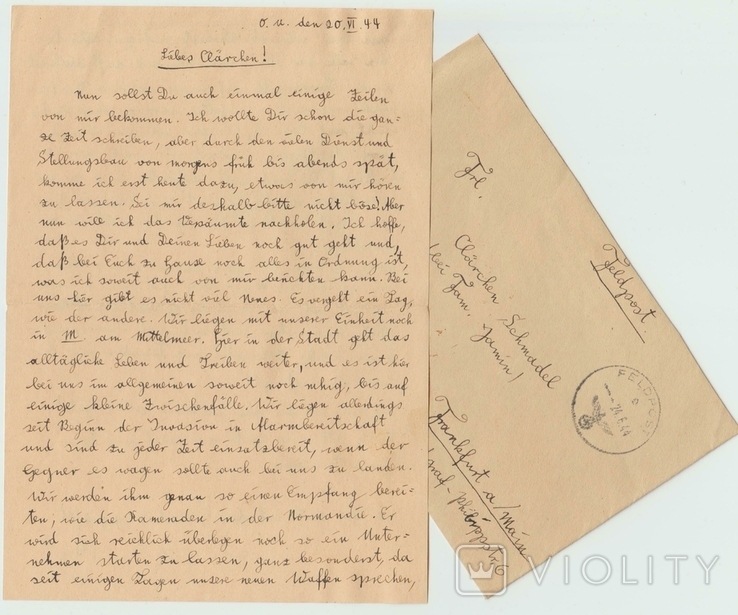 O. U. den 20. VI. 44
Liebes Clärchen!
Nun sollst Du auch einmal einige Zeilen
von mir bekommen. Ich wollte Dir schon die gan-
ze Zeit schreiben, aber durch den vielen Dienst und
Stellungsbau von morgens früh bis abends spät,
komme ich erst heute dazu, etwas von mir hören
zu lassen. Sei mir deshalb bitte nicht böse! Aber
nun will ich das Versäumte nachholen. Ich hoffe,
daß es Dir und Deinen Lieben noch gut geht und,
daß bei Euch zu Hause noch alles in Ordnung ist,
was ich soweit auch von mir berichten kann. Bei
uns hier gibt es nicht viel Neues. Es vergeht ein Tag,
wie der andere. Wir liegen mit unserer Einheit noch
in M. am Mittelmeer. Hier in der Stadt geht das
alltägliche Leben und Treiben weiter, und es ist hier
bei uns im allgemeinen soweit noch ruhig, bis auf
einige kleine Zwischenfälle. Wir liegen allerdings
seit Beginn der Invasion in Alarmbereitschaft
und sind zu jeder Zeit einsatzbereit, wenn der
Gegner es wagen sollte auch bei uns zu landen.
Wir werden ihm genau so einen Empfang berei-
ten, wie die Kameraden in der Normandie. Er
wird sich reichlich überlegen noch so ein Unter-
nehmen starten zu lassen, ganz besonderst, da
seit einigen Tagen unsere neuen Waffen sprechen,
Feldpost
Frl.
Clärchen Schmadel
bei Fam. Jamin
Frankfurt a/Main
FELDPOST
24.6.44
VIOLITY